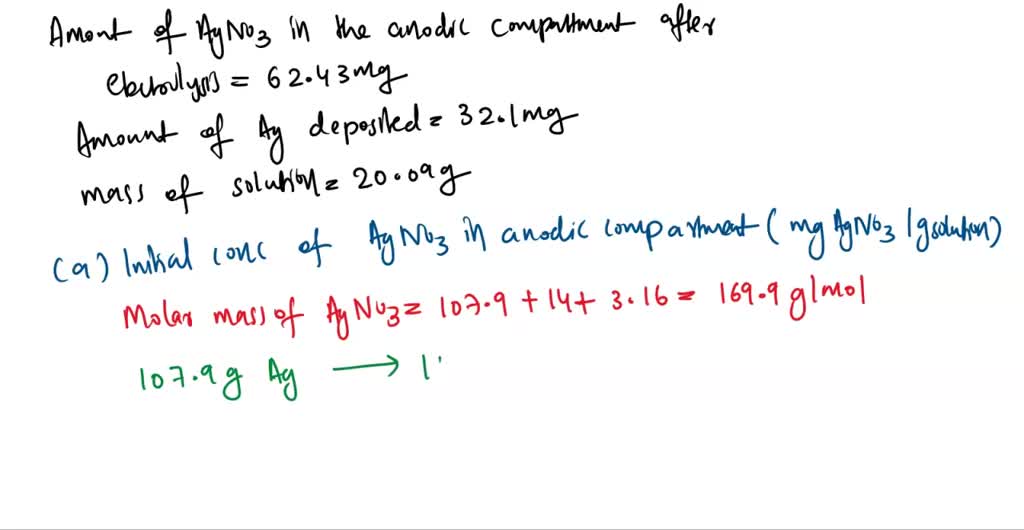 Amont of AgNO3 in the anodic compartment after
electrolysis = 62.43mg
Amount of Ag deposited = 32.1mg
mass of solution = 20.09g
(a) Initial conc of AgNO3 in anodic compartment (mg AgNO3 / gsolution)
Molar mass of AgNO3 = 107.9 + 14 + 3.16 = 169.9 g/mol
107.9g Ag → 1